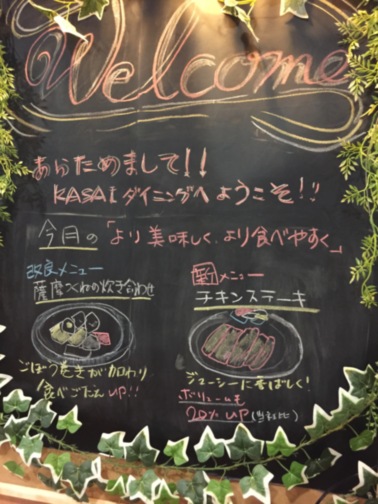 Welcome
あらためまして!!
KASAIダイニングへようこそ!!
今月の「より美味しく、より食べやすく」
改良メニュー
薩摩つくねの炊き合わせ
ごぼう巻きが加わり
食べごたえUP!!
新メニュー
チキンステーキ
ジューシーに香ばしく!
ボリュームも
20% UP(当社比)